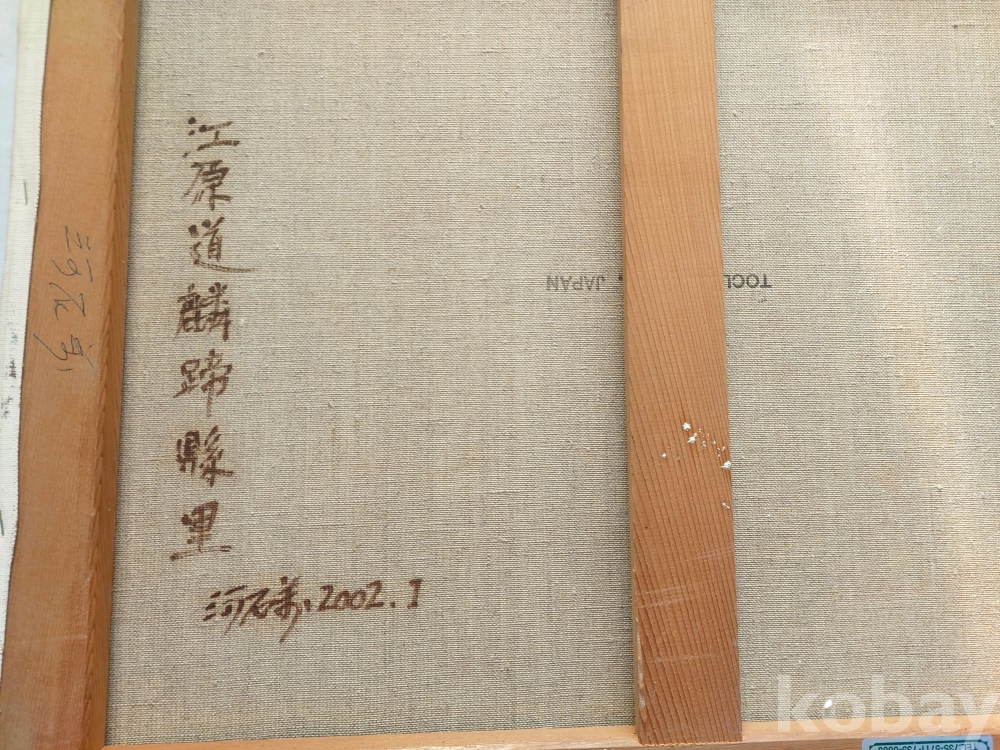 江原道麟蹄縣里
河石 2002.1
TOCL JAPAN
河石
kobay